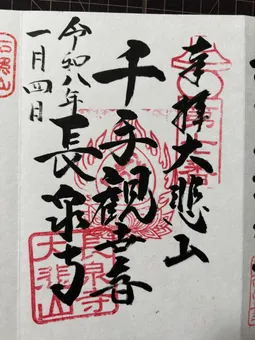 奉拝 大悲山
千手観世音
長泉寺
令和八年
一月四日
長泉寺
大悲山